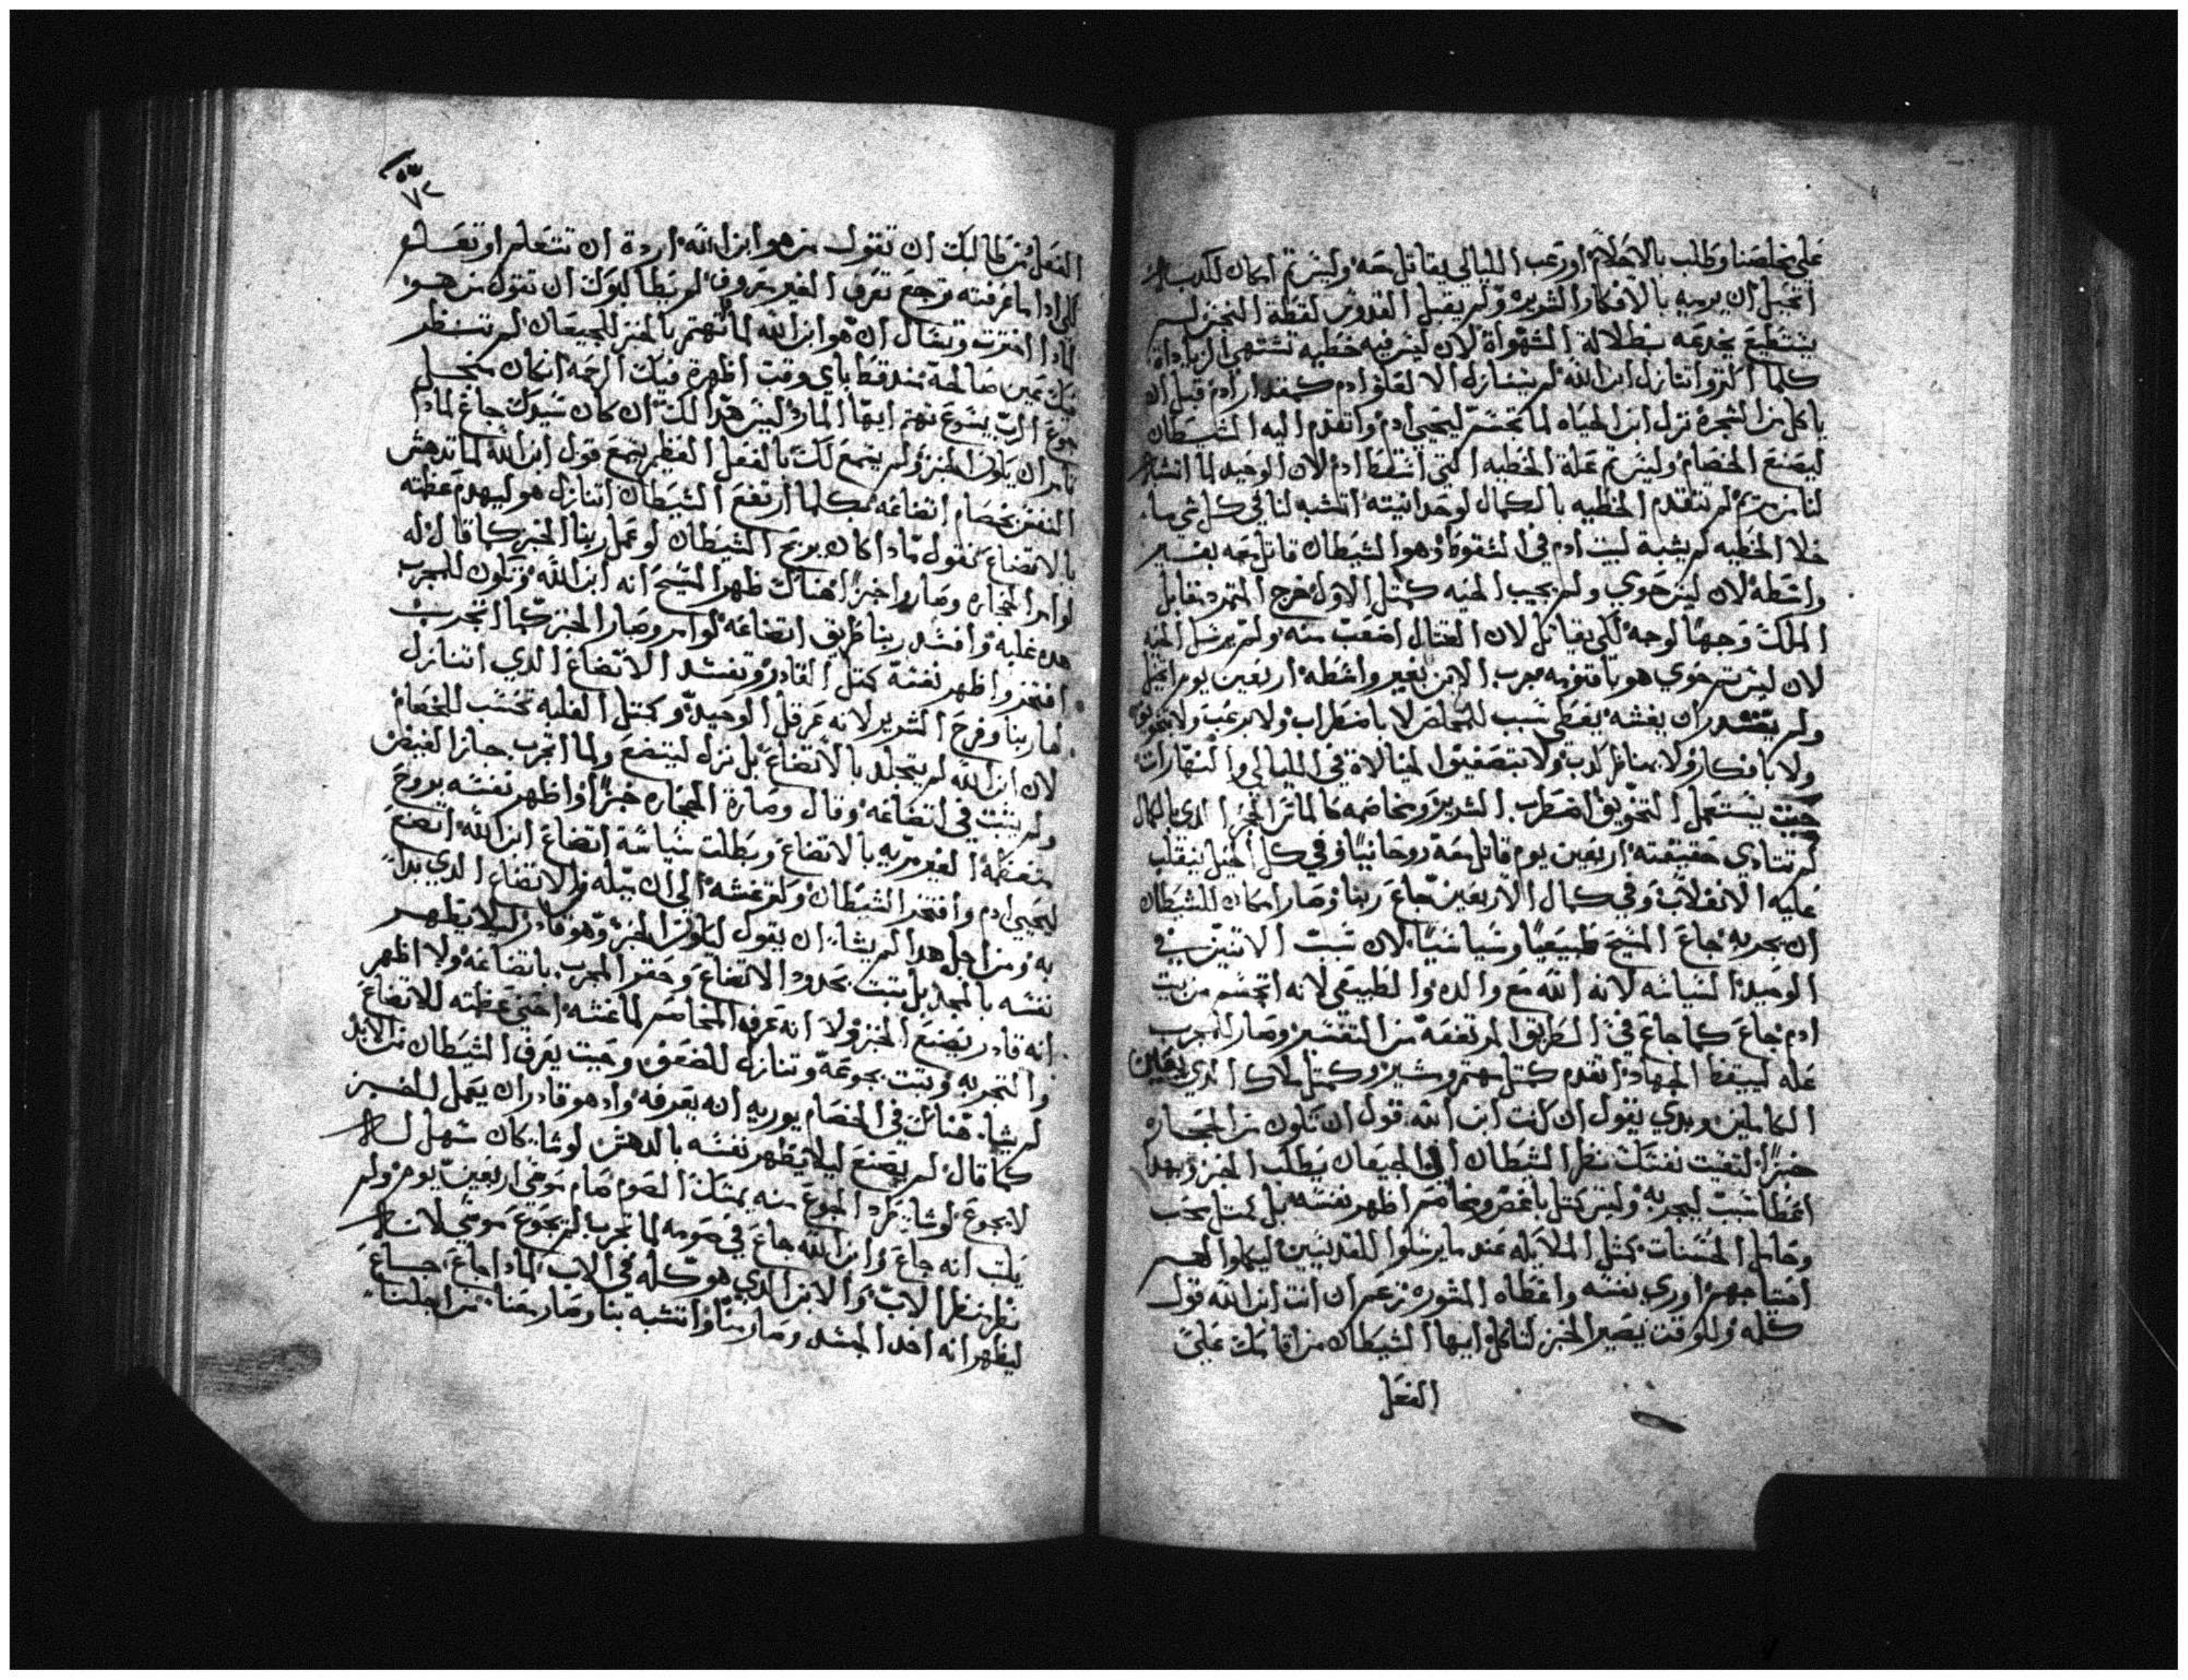 على مخلصنا وطلب بالاحلام او رعب الليالي يقاتل معه وليس تم امكان للكدب
اتحيل ان يرميه بالافكار الشريره ولم يقبل القدوس لقطة النجس لم
يستطيع يخدعه ببطلالة الشهواة لان ليس فيه خطيه تشتهي الرياداة
كلما اتنازل ابن الله لم يتنازل الا لعلو ادم كمقدار ادم قبل ان
ياكل من الشجرة نزل ابن الحياه لما تجسم ليحيي ادم واتقدم اليه الشيطان
ليصنع الخصام وليس تم علة الخطيه التي اسقطة ادم لان الوحيد لما اتشبه
لنا من مريم لم تتقدم الخطيه بالكمال لوحدانيته اتشبه لنا في كل شي ما
خلا الخطيه لم يشبة لبيت ادم في السقوط وهو الشيطان قاتل معه بغير
واسطه لان ليس حوي ولم يجيب الحيه كمثل الاول خرج المتمرد مقابل
الملك وجهًا لوجه لكي يقاتل لان القتال اصعب منه ولم يرسل الحيه
لان ليس تم حوي هو باقنومه يجرب الابن بغير واسطه اربعين يوم اتحيل
ولم يقدر ان يغشه يعطي سبب للمخلص لا باضطراب ولا برعب ولا بتخويف
ولا بافكار ولا بمناظر كدب ولا بتصفيق الخيالاة في الليالي والنهارات
حيت يستعمل التخويق اضطرب الشرير وبخاصمه كالماتر الحجر الدي بالكمال
لم تتادي حقيقته اربعين يوم قاتل معه روحانيًا وفي كل الحيل ينقلب
عليه الانغلاب وفي كمال الاربعين جاع ربنا وصار امكان للشيطان
ان يجربه جاع المسيح طبيعيًا وسياسيًا لان سبب الاتنين في
الوحيد السياسه لانه الله مع والده والطبيعي لانه اتجسم من بيت
ادم جاع كما جاع في الطريق المرتفعة من التفسير وصار للمجرب
عله ليبقظ الجهاد اتقدم كمثل مهتم ومشير وكمثل ملاك الدي يعين
الكاملين وبدي يقول ان كنت ابن الله قول ان تكون من الحجاره
خبزًا لتقيت نفسك نظر الشيطان الى الجيعان يطلب الخبز وبهدا
اعطا سبب ليجربه وليس كمثل باغض ومخاصم اظهر نفسه بل كمثل محب
وحامل الحسنات كمثل الملايكه عند ما يرسلوا للقديسين ليكملوا لهم
احتياجهم اوري نفسه واعطاه المشوره تزعم ان انت ابن الله قول
كلمه وللوقت يصير الخبز لتاكل ايها الشيطان من اقامك على
الفعل
٧٢
الفعل من طالبك ان تقول من هو ابن الله اردة ان تتعلم او تعلم
لكي ادا ما عرفته ترجع تعرف الغير معروف لم يطالبوك ان تقول من هو
لمادا افتريت وتسال ان هو ابن الله لما تهتم بالخبز للجيعان لم تنظر
منك عين صالحة عند قط باي وقت اظهرة فيك الرحمه امكان منجل
جوع الرب يسوع تهتم ايها المارد ليس هدا لك ان كان سيدك جاع لمادا
تامر ان يكون الخبز ولم يسمع لك بالفعل الفطير يسمع قول ابن الله لما تدهش
النفس بخصام اتضاعه فكلما ارتفع الشيطان اتنازل هو ليهدم عظمته
بالاتضاع نقول مادا كان يربح الشيطان لو عمل ربنا الخبز كما قال له
لو امر الحجاره وصاروا خبزًا هناك ظهر المسيح انه ابن الله وتكون للمجرب
هده غلبه وافسد ربنا طريق اتضاعه لو امر وصار الخبز كما اتجرب
افتخر واظهر نفسه كمثل القادر وتفسد الاتضاع الدي اتنازل
لها ربنا وفرح الشرير لانه عرقل الوحيد وكمثل الغلبه تحسب للخصام
لان ابن الله لم يتجلد بالاتضاع بل نزل ليتضع ولما اتجرب جاز الغيض
ولم يتبت في اتضاعه وقال وصارة الحجاره خبزًا واظهر نفسه بروح
متعظمه الغير مريه بالاتضاع وبطلت سياسة اتضاع ابن الله اتضع
ليحيي ادم وافتخر الشيطان ولم تغشه الى ان يميله من الاتضاع الدي بدا
به ومن اجل هدا لم يشا ان يقول ليكون الخبز وهو قادر ليلا يظهر
نفسه بالمجد بل تبت بحدود الاتضاع وحقر المجرب باتضاعه ولا اظهر
انه قادر يصنع الخبز ولا انه عرف المخاصم لما غشه احنى عظمته للاتضاع
والتجربه وتبت بجوعه وتنازل للضعف وحيت يعرف الشيطان من الابن
لم يشا هناك في الخصام يوريه انه يعرفه واد هو قادر ان يعمل للخبز
كما قال لم يصنع ليلا يظهر نفسه بالدهش لو شا كان سهل له
لا يجوع لو شا طرد الجوع منه بمتلك الصوم صام موسي اربعين يوم ولم
يكتب انه جاع وابن الله جاع في صومه لما تجرب لم يجوع موسي لانه
نظر منظر الاب والابن الدي هو كله في الاب لمادا جاع جاع
ليظهر انه اخد الجسد وصار منا واتشبه بنا وصار معنا من اجلنا